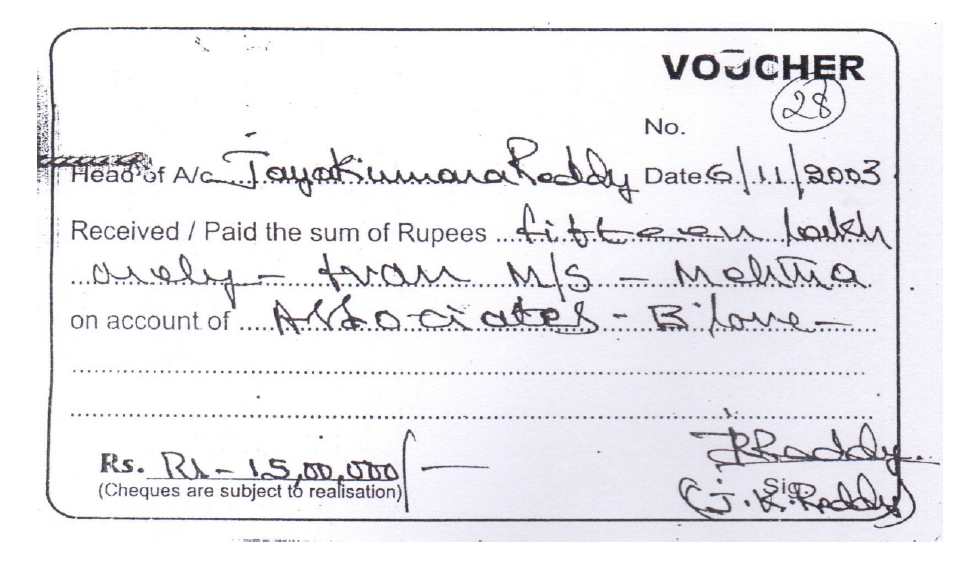 VOUCHER
28
No.
Head of A/c Jayakumara Reddy Date 6/11/2003
Received / Paid the sum of Rupees fifteen lakh
only - from M/S - Mehtha
on account of Associates - B'lore -
Rs. Rs - 15,00,000/-
(Cheques are subject to realisation)
JKReddy.
Sig.
(J.K.Reddy)